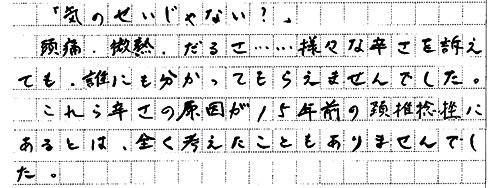 「気のせいじゃない?」
頭痛、微熱、だるさ……様々な辛さを訴え
ても、誰にも分かってもらえませんでした。
これら辛さの原因が15年前の頚椎捻挫に
あるとは、全く考えたこともありませんでし
た。